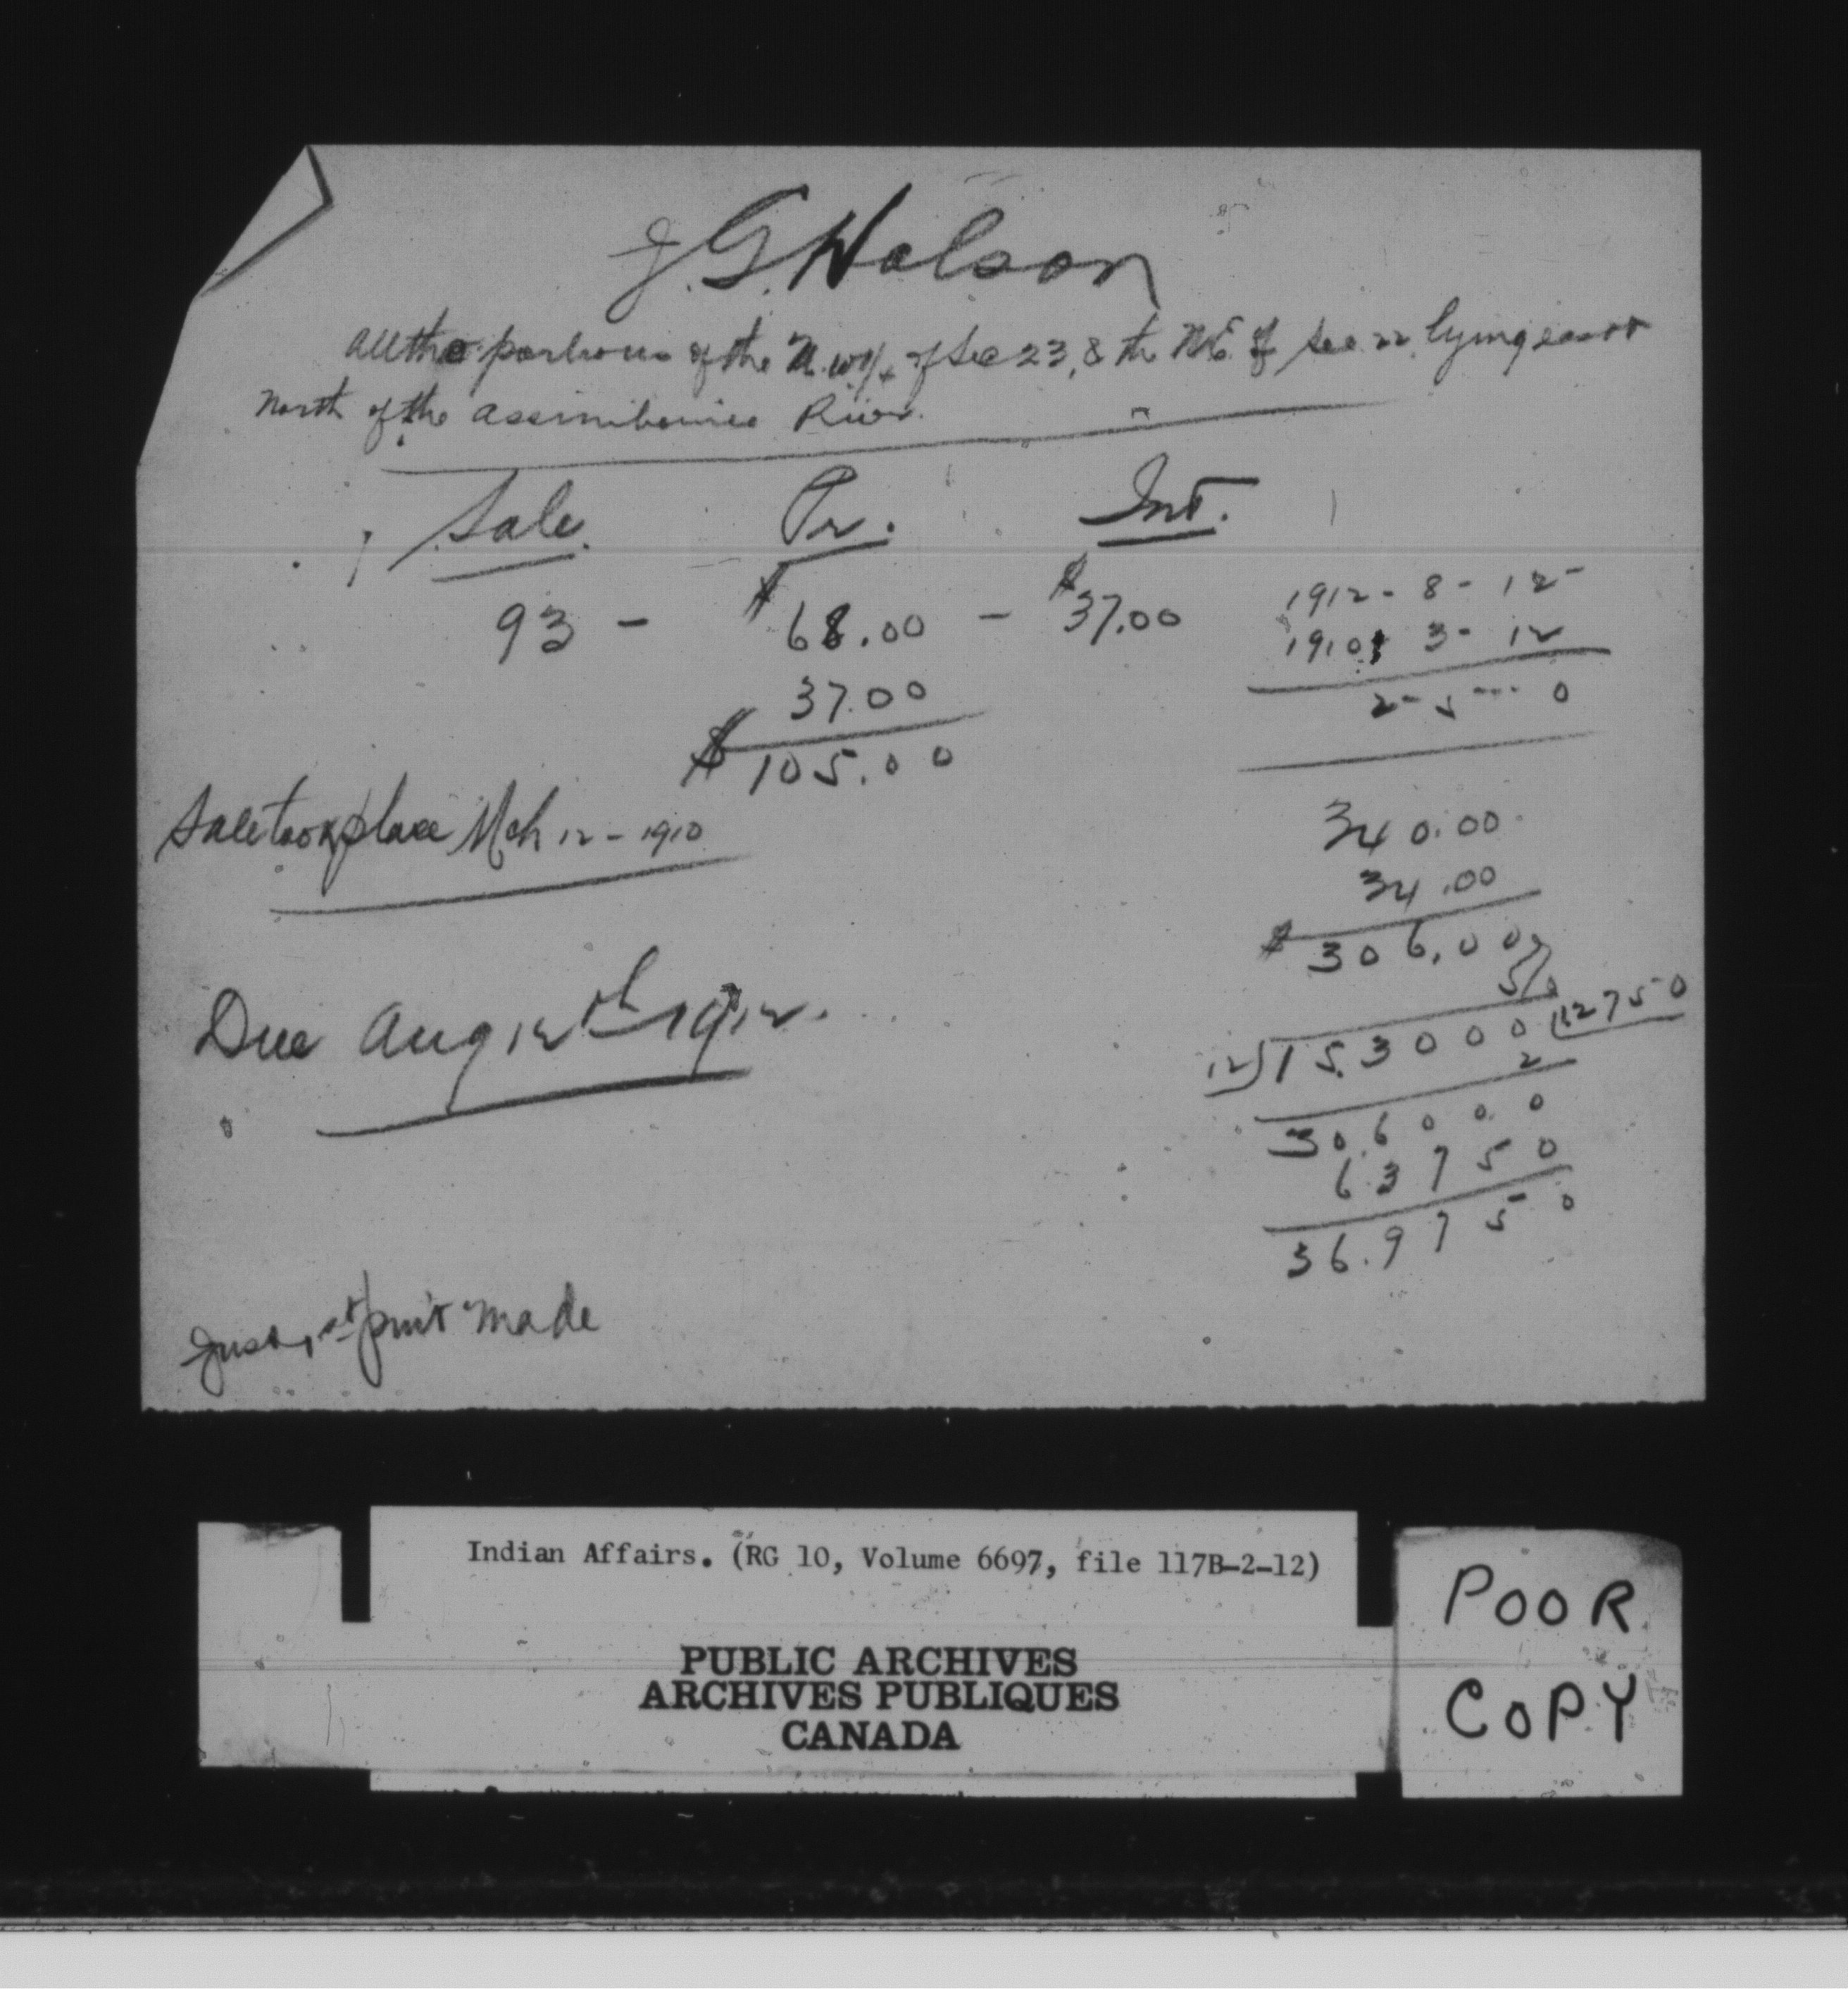 J.G. Nelson
All the portions of the N.W¼ of Sec 23, & the NE of Sec 22 lying east &
North of the Assiniboine River.
Sale. Pr. Int.
93 - $68.00 - $37.00
37.00
$105.00
1912 - 8 - 12 -
1910 3 - 12
2 - 5 --- 0
Sale took place Mch 12 - 1910
340.00
34.00
$306.00
5%
12)15.3000(12750
2
30.6000
6.3750
36.9750
Due Aug 12th 1912.
Just 1st pmt made
Indian Affairs. (RG 10, Volume 6697, file 117B-2-12)
PUBLIC ARCHIVES
ARCHIVES PUBLIQUES
CANADA
POOR
COPY